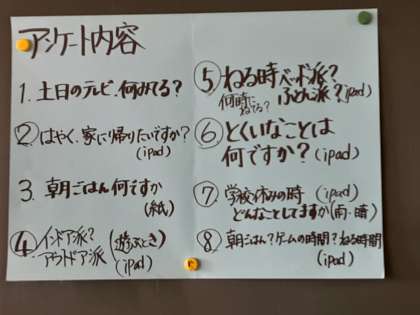 アンケート内容
1. 土日のテレビ、何みてる?
②はやく、家に帰りたいですか?
(ipad)
3 朝ごはん何ですか
(紙)
④インドア派? (遊ぶとき)
アウトドア派 (ipad)
⑤ねる時ベッド派?
ふとん派?(ipad)
何時にねてる?
⑥とくいなことは
何ですか?(ipad)
⑦学校休みの時 (ipad)
どんなことしてますか(雨・晴)
⑧朝ごはん?ゲームの時間?ねる時間
(ipad)